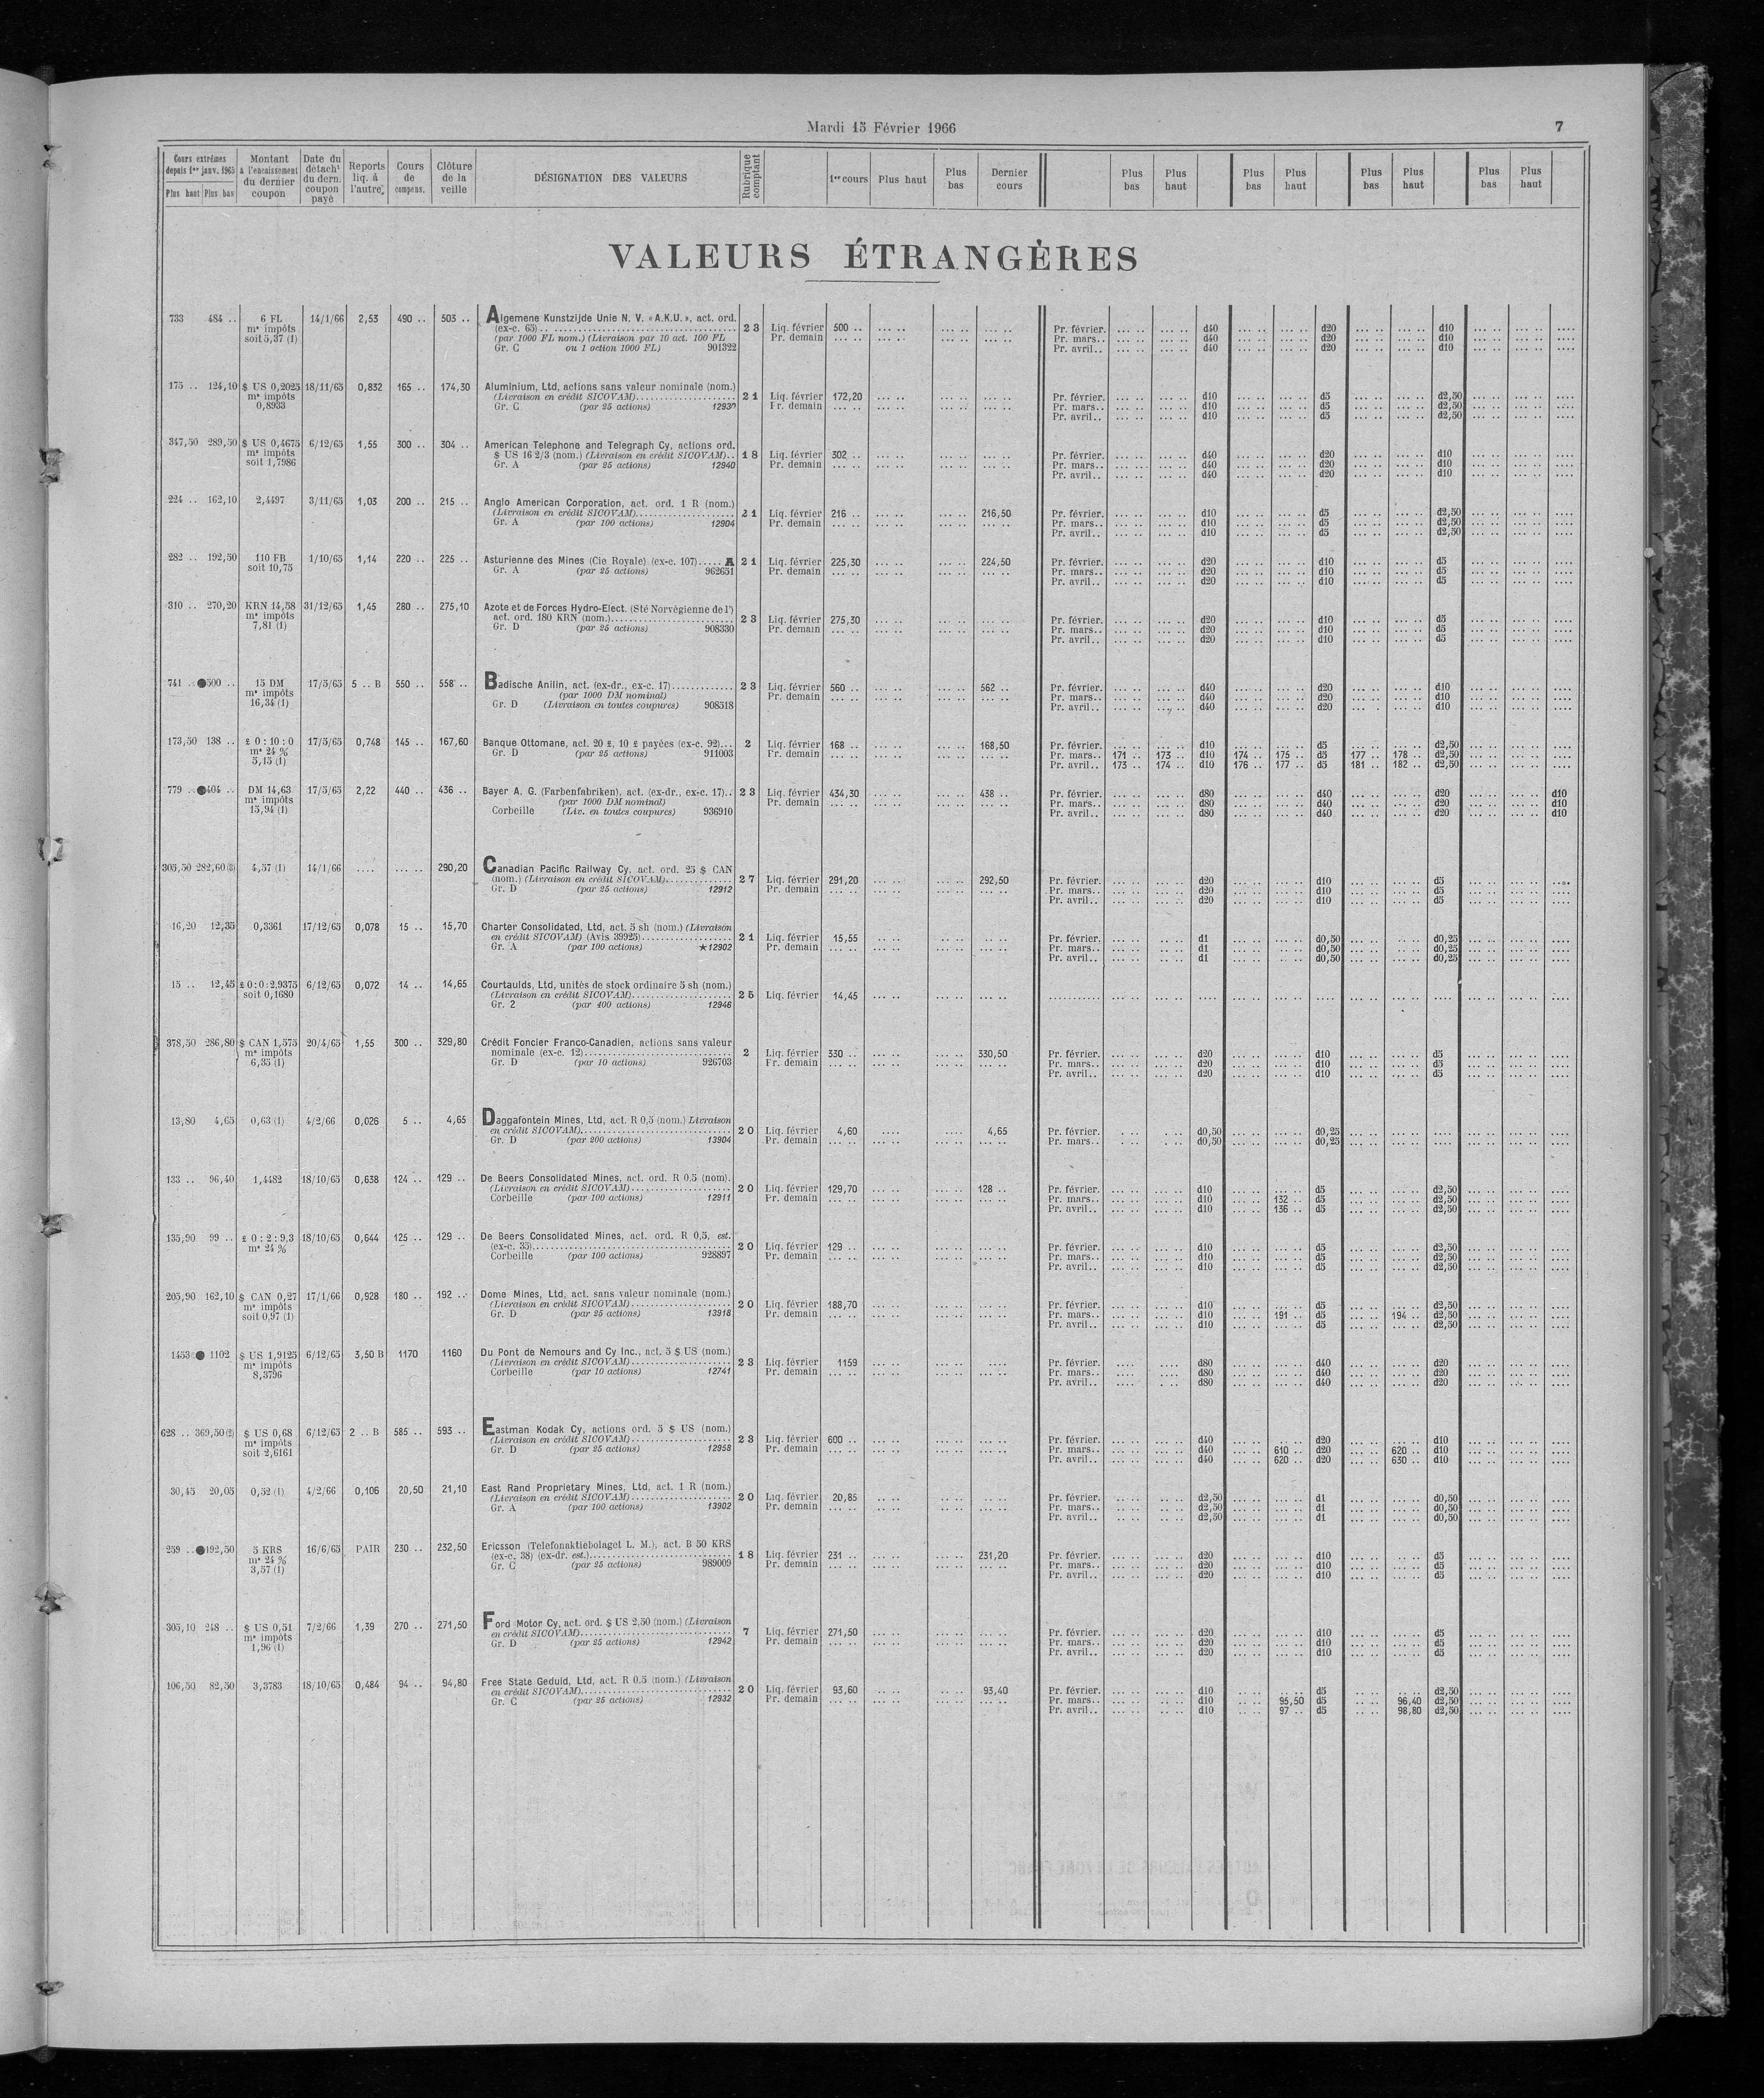 Mardi 15 Février 1966
7
Cours extrêmes depuis 1er janv. 1965 Plus haut Plus bas | Montant à l'encaissement du dernier coupon | Date du détacht du dern. coupon payé | Reports liq. à l'autre | Cours de compens. | Clôture de la veille | DÉSIGNATION DES VALEURS | Rubrique comptant | 1er cours | Plus haut | Plus bas | Dernier cours | Plus bas | Plus haut | Plus bas | Plus haut | Plus bas | Plus haut | Plus bas | Plus haut
VALEURS ÉTRANGÈRES
733 484 .. 6 FL 14/1/66 2,53 490 .. 503 .. Algemene Kunstzijde Unie N. V. « A.K.U. », act. ord.
ms impôts (ex-c. 65) .. 23 Liq. février 500 .. Pr. février. d40 d20 d10
soit 5,37 (1) (par 1000 FL nom.) (Livraison par 10 act. 100 FL Pr. demain Pr. mars.. d40 d20 d10
Gr. C ou 1 action 1000 FL) 901322 Pr. avril.. d40 d20 d10
175 .. 124,10 $ US 0,2025 18/11/65 0,832 165 .. 174,30 Aluminium, Ltd, actions sans valeur nominale (nom.)
ms impôts (Livraison en crédit SICOVAM) 21 Liq. février 172,20 Pr. février. d10 d5 d2,50
0,8933 Gr. C (par 25 actions) 12930 Fr. demain Pr. mars.. d10 d5 d2,50
Pr. avril.. d10 d5 d2,50
347,50 289,50 $ US 0,4675 6/12/65 1,55 300 .. 304 .. American Telephone and Telegraph Cy, actions ord.
ms impôts $ US 16 2/3 (nom.) (Livraison en crédit SICOVAM).. 18 Liq. février 302 .. Pr. février. d40 d20 d10
soit 1,7986 Gr. A (par 25 actions) 12940 Pr. demain Pr. mars.. d40 d20 d10
Pr. avril.. d40 d20 d10
224 .. 162,10 2,4497 3/11/65 1,03 200 .. 215 .. Anglo American Corporation, act. ord. 1 R (nom.)
(Livraison en crédit SICOVAM) 21 Liq. février 216 .. 216,50 Pr. février. d10 d5 d2,50
Gr. A (par 100 actions) 12904 Pr. demain Pr. mars.. d10 d5 d2,50
Pr. avril.. d10 d5 d2,50
282 .. 192,50 110 FB 1/10/65 1,14 220 .. 225 .. Asturienne des Mines (Cie Royale) (ex-c. 107) ..... A 21 Liq. février 225,30 224,50 Pr. février. d20 d10 d5
soit 10,75 Gr. A (par 25 actions) 962651 Pr. demain Pr. mars.. d20 d10 d5
Pr. avril.. d20 d10 d5
310 .. 270,20 KRN 14,58 31/12/65 1,45 280 .. 275,10 Azote et de Forces Hydro-Elect. (Sté Norvégienne de l')
ms impôts act. ord. 180 KRN (nom.) 23 Liq. février 275,30 Pr. février. d20 d10 d5
7,81 (1) Gr. D (par 25 actions) 908330 Pr. demain Pr. mars.. d20 d10 d5
Pr. avril.. d20 d10 d5
741 .. ●500 .. 15 DM 17/5/65 5 .. B 550 .. 558 .. Badische Anilin, act. (ex-dr., ex-c. 17) 23 Liq. février 560 .. 562 .. Pr. février. d40 d20 d10
ms impôts (par 1000 DM nominal) Pr. demain Pr. mars.. d40 d20 d10
16,34 (1) Gr. D (Livraison en toutes coupures) 908518 Pr. avril.. d40 d20 d10
173,50 138 .. £ 0 : 10 : 0 17/5/65 0,748 145 .. 167,60 Banque Ottomane, act. 20 £, 10 £ payées (ex-c. 92)... 2 Liq. février 168 .. 168,50 Pr. février. d10 d5 d2,50
ms 24 % Gr. D (par 25 actions) 911003 Fr. demain Pr. mars.. 171 .. 173 .. d10 174 .. 175 .. d5 177 .. 178 .. d2,50
5,15 (1) Pr. avril.. 173 .. 174 .. d10 176 .. 177 .. d5 181 .. 182 .. d2,50
779 .. ●404 .. DM 14,63 17/5/65 2,22 440 .. 436 .. Bayer A. G. (Farbenfabriken), act. (ex-dr., ex-c. 17).. 23 Liq. février 434,30 438 .. Pr. février. d80 d40 d20 d10
ms impôts (par 1000 DM nominal) Pr. demain Pr. mars.. d80 d40 d20 d10
15,94 (1) Corbeille (Liv. en toutes coupures) 936910 Pr. avril.. d80 d40 d20 d10
305,50 282,60 (3) 4,57 (1) 14/1/66 .... ... .. 290,20 Canadian Pacific Railway Cy, act. ord. 25 $ CAN
(nom.) (Livraison en crédit SICOVAM) 27 Liq. février 291,20 292,50 Pr. février. d20 d10 d5
Gr. D (par 25 actions) 12912 Pr. demain Pr. mars.. d20 d10 d5
Pr. avril.. d20 d10 d5
16,20 12,35 0,3361 17/12/65 0,078 15 .. 15,70 Charter Consolidated, Ltd, act. 5 sh (nom.) (Livraison
en crédit SICOVAM) (Avis 39925) 21 Liq. février 15,55 Pr. février. d1 d0,50 d0,25
Gr. A (par 100 actions) ★12902 Pr. demain Pr. mars.. d1 d0,50 d0,25
Pr. avril.. d1 d0,50 d0,25
15 .. 12,45 £ 0:0:2,9375 6/12/65 0,072 14 .. 14,65 Courtaulds, Ltd, unités de stock ordinaire 5 sh (nom.)
soit 0,1680 (Livraison en crédit SICOVAM) 25 Liq. février 14,45
Gr. 2 (par 400 actions) 12946
378,50 286,80 $ CAN 1,575 20/4/65 1,55 300 .. 329,80 Crédit Foncier Franco-Canadien, actions sans valeur
ms impôts nominale (ex-c. 12) 2 Liq. février 330 .. 330,50 Pr. février. d20 d10 d5
6,35 (1) Gr. D (par 10 actions) 926703 Fr. demain Pr. mars.. d20 d10 d5
Pr. avril.. d20 d10 d5
13,80 4,65 0,63 (1) 4/2/66 0,026 5 .. 4,65 Daggafontein Mines, Ltd, act. R 0,5 (nom.) Livraison
en crédit SICOVAM) 20 Liq. février 4,60 4,65 Pr. février. d0,50 d0,25
Gr. D (par 200 actions) 13904 Pr. demain Pr. mars.. d0,50 d0,25
133 .. 96,40 1,4482 18/10/65 0,638 124 .. 129 .. De Beers Consolidated Mines, act. ord. R 0,5 (nom).
(Livraison en crédit SICOVAM) 20 Liq. février 129,70 128 .. Pr. février. d10 d5 d2,50
Corbeille (par 100 actions) 12911 Pr. demain Pr. mars.. d10 132 .. d5 d2,50
Pr. avril.. d10 136 .. d5 d2,50
135,90 99 .. £ 0 : 2 : 9,3 18/10/65 0,644 125 .. 129 .. De Beers Consolidated Mines, act. ord. R 0,5, est.
ms 24 % (ex-c. 35) 20 Liq. février 129 .. Pr. février. d10 d5 d2,50
Corbeille (par 100 actions) 928897 Pr. demain Pr. mars.. d10 d5 d2,50
Pr. avril.. d10 d5 d2,50
205,90 162,10 $ CAN 0,27 17/1/66 0,928 180 .. 192 .. Dome Mines, Ltd, act. sans valeur nominale (nom.)
ms impôts (Livraison en crédit SICOVAM) 20 Liq. février 188,70 Pr. février. d10 d5 d2,50
soit 0,97 (1) Gr. D (par 25 actions) 13918 Pr. demain Pr. mars.. d10 191 .. d5 194 .. d2,50
Pr. avril.. d10 d5 d2,50
1453 ● 1102 $ US 1,9125 6/12/65 3,50 B 1170 1160 Du Pont de Nemours and Cy Inc., act. 5 $ US (nom.)
ms impôts (Livraison en crédit SICOVAM) 23 Liq. février 1159 Pr. février. d80 d40 d20
8,3796 Corbeille (par 10 actions) 12741 Pr. demain Pr. mars.. d80 d40 d20
Pr. avril.. d80 d40 d20
628 .. 369,50 (2) $ US 0,68 6/12/65 2 .. B 585 .. 593 .. Eastman Kodak Cy, actions ord. 5 $ US (nom.)
ms impôts (Livraison en crédit SICOVAM) 23 Liq. février 600 .. Pr. février. d40 d20 d10
soit 2,6161 Gr. D (par 25 actions) 12958 Pr. demain Pr. mars.. d40 610 .. d20 620 .. d10
Pr. avril.. d40 620 .. d20 630 .. d10
30,45 20,05 0,52 (1) 4/2/66 0,106 20,50 21,10 East Rand Proprietary Mines, Ltd, act. 1 R (nom.)
(Livraison en crédit SICOVAM) 20 Liq. février 20,85 Pr. février. d2,50 d1 d0,50
Gr. A (par 100 actions) 13902 Pr. demain Pr. mars.. d2,50 d1 d0,50
Pr. avril.. d2,50 d1 d0,50
259 .. ●192,50 5 KRS 16/6/65 PAIR 230 .. 232,50 Ericsson (Telefonaktiebolaget L. M.), act. B 50 KRS
ms 24 % (ex-c. 38) (ex-dr. est.) 18 Liq. février 231 .. 231,20 Pr. février. d20 d10 d5
3,57 (1) Gr. C (par 25 actions) 989009 Pr. demain Pr. mars.. d20 d10 d5
Pr. avril.. d20 d10 d5
305,10 248 .. $ US 0,51 7/2/66 1,39 270 .. 271,50 Ford Motor Cy, act. ord. $ US 2,50 (nom.) (Livraison
ms impôts en crédit SICOVAM) 7 Liq. février 271,50 Pr. février. d20 d10 d5
1,96 (1) Gr. D (par 25 actions) 12942 Pr. demain Pr. mars.. d20 d10 d5
Pr. avril.. d20 d10 d5
106,50 82,50 3,3783 18/10/65 0,484 94 .. 94,80 Free State Geduld, Ltd, act. R 0,5 (nom.) (Livraison
en crédit SICOVAM) 20 Liq. février 93,60 93,40 Pr. février. d10 d5 d2,50
Gr. C (par 25 actions) 12932 Pr. demain Pr. mars.. d10 95,50 d5 96,40 d2,50
Pr. avril.. d10 97 .. d5 98,80 d2,50